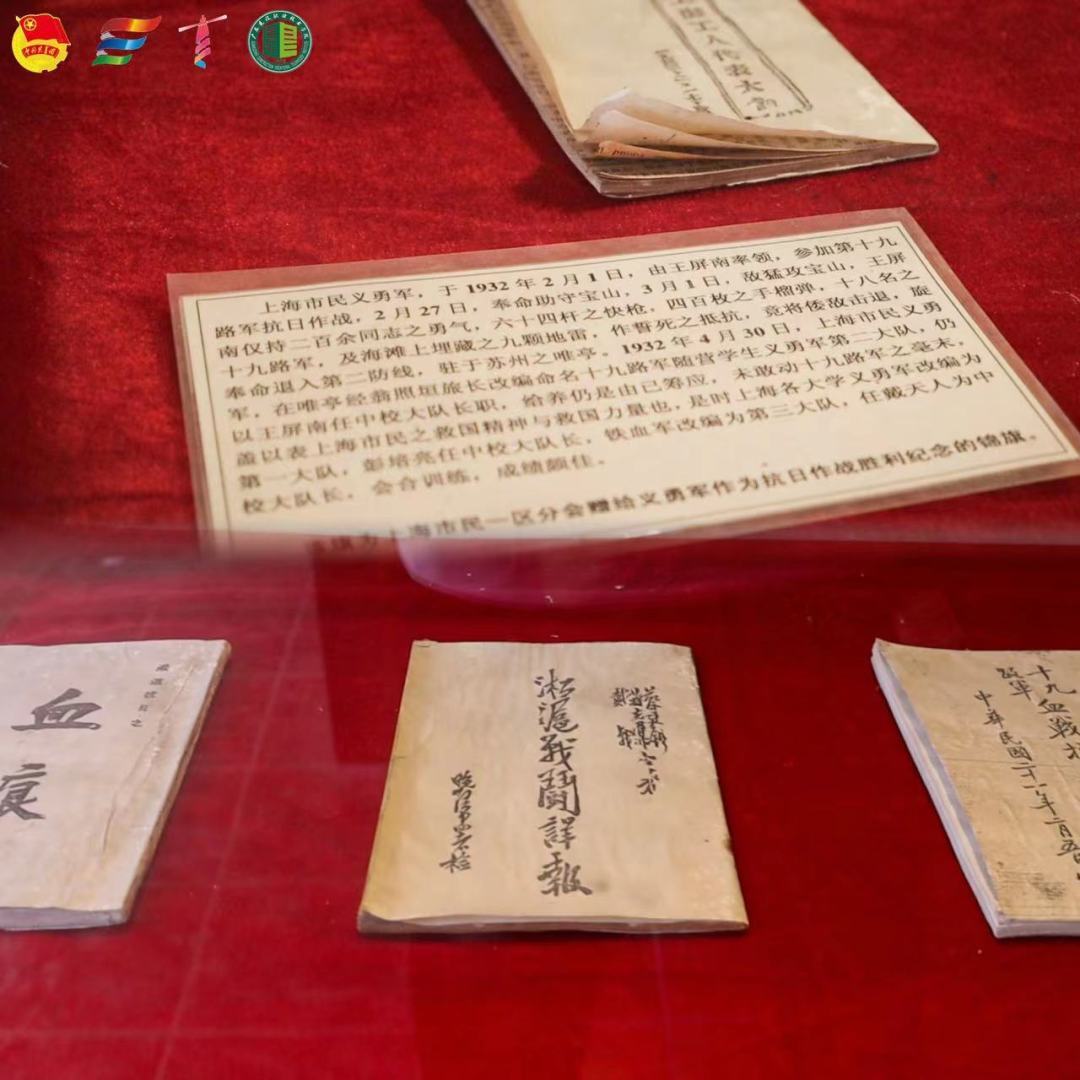 工人代表大會
上海市民义勇军，于1932年2月1日，由王屏南率领，参加第十九
路军抗日作战，2月27日，奉命助守宝山，3月1日，敌猛攻宝山，王屏
南仅持二百余同志之勇气，六十四杆之快枪，四百枚之手榴弹，十八名之
十九路军，及海滩上埋藏之九颗地雷，作誓死之抵抗，竟将倭敌击退，旋
奉命退入第二防线，驻于苏州之唯亭。1932年4月30日，上海市民义勇
军，在唯亭经翁照垣旅长改编命名十九路军随营学生义勇军第二大队，仍
以王屏南任中校大队长职，给养仍是由己筹应，未敢动十九路军之毫末，
盖以表上海市民之救国精神与救国力量也，是时上海各大学义勇军改编为
第一大队，彭培亮任中校大队长，铁血军改编为第三大队，任戴天人为中
校大队长，会合训练，成绩颇佳。
旗为上海市民一区分会赠给义勇军作为抗日作战胜利纪念的锦旗。
血
痕
淞滬戰鬪詳報
十九
血戰
中華民國二十一年二月五日